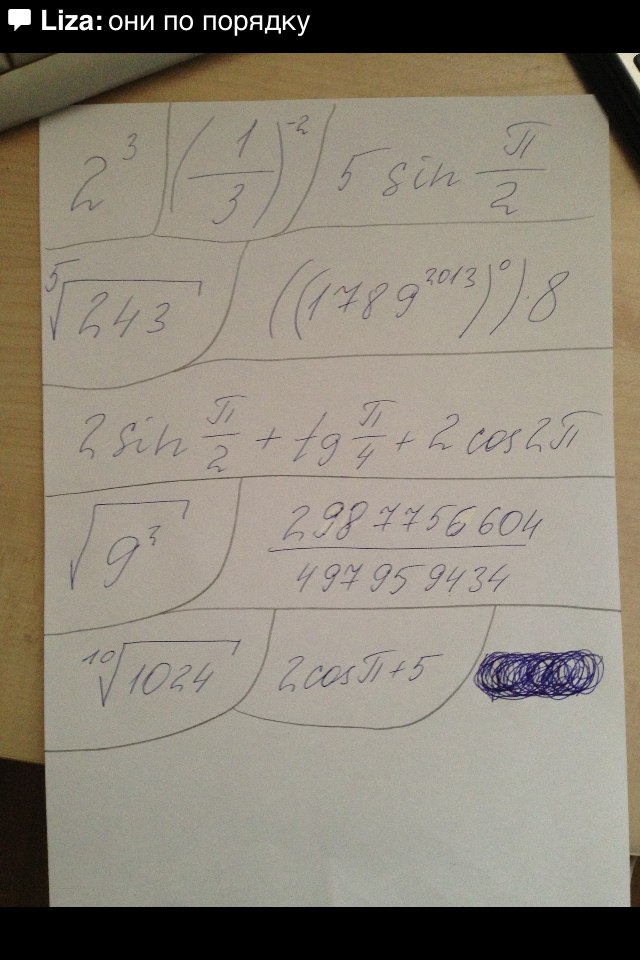 Liza: они по порядку
2³ (1/3)⁻² 5 sin π/2
⁵√243 ((1789²⁰¹³)⁰)·8
2 sin π/2 + tg π/4 + 2 cos 2π
√9² 2987756604/497959434
¹⁰√1024 2cosπ+5